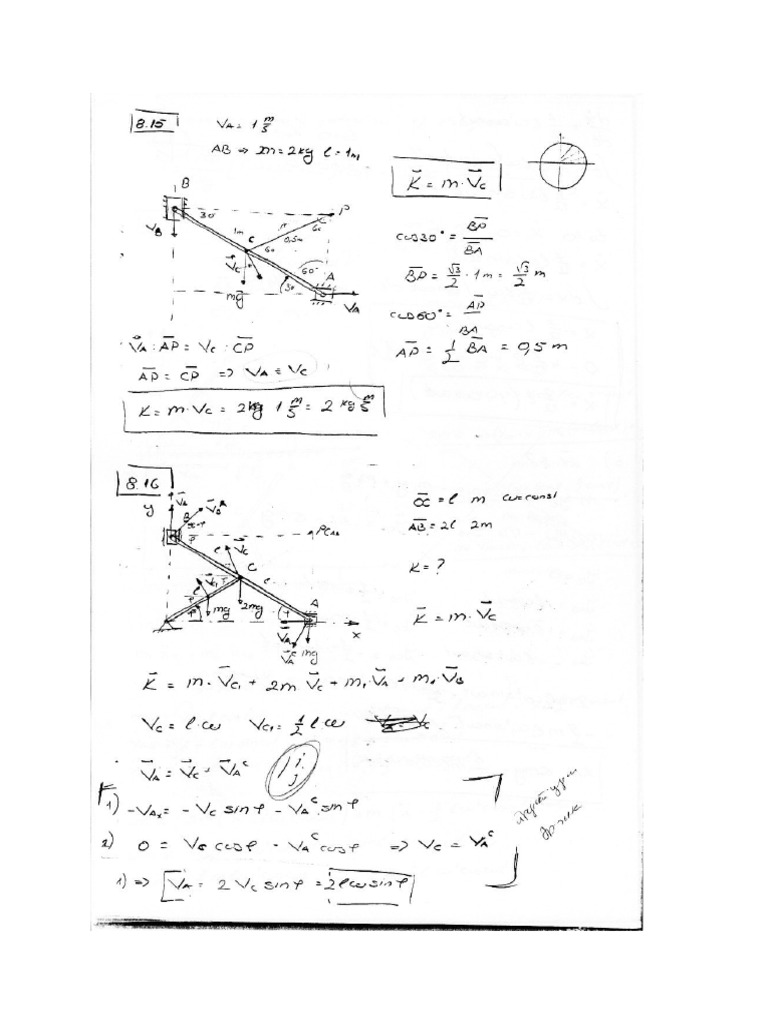 8.15
V_A = 1 m/s
AB ⇒ m = 2kg l = 1m
K̄ = m · V̄_C
B
30°
P
V_B
1m
C
0,5m
60
60°
V̄_C
30
A
mg
V_A
cos30° = B̄P̄ / B̄Ā
B̄P̄ = √3/2 · 1m = √3/2 m
cos60° = ĀP̄ / BA
ĀP̄ = 1/2 B̄Ā = 0,5 m
V_A : ĀP̄ = V_C : C̄P̄
ĀP̄ = C̄P̄ ⇒ V_A = V_C
K = m · V_C = 2kg 1 m/s = 2 kg m/s
8.16
y
B
V̄_C
C
V̄_C1
mg
2mg
A
x
V̄_A^C
mg
ŌC̄ = l m ω = const
ĀB̄ = 2l 2m
K = ?
K̄ = m · V̄_C
K̄ = m · V̄_C1 + 2m V̄_C + m₁ · V̄_A + m₁ · V̄_B
V_C = l · ω V_C1 = 1/2 l · ω
V̄_A = V̄_C + V̄_A^C
1) -V_Ax = -V_C sinφ - V_A^C sinφ
2) 0 = V_C cosφ - V_A^C cosφ ⇒ V_C = V_A^C
1) ⇒ V_A = 2 V_C sinφ = 2lω sinφ